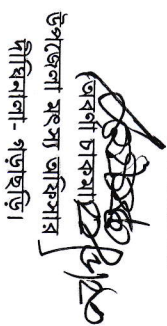 (অবর্ণা চাকমা)
উপজেলা মৎস্য অফিসার
দীঘিনালা- খাগড়াছড়ি।